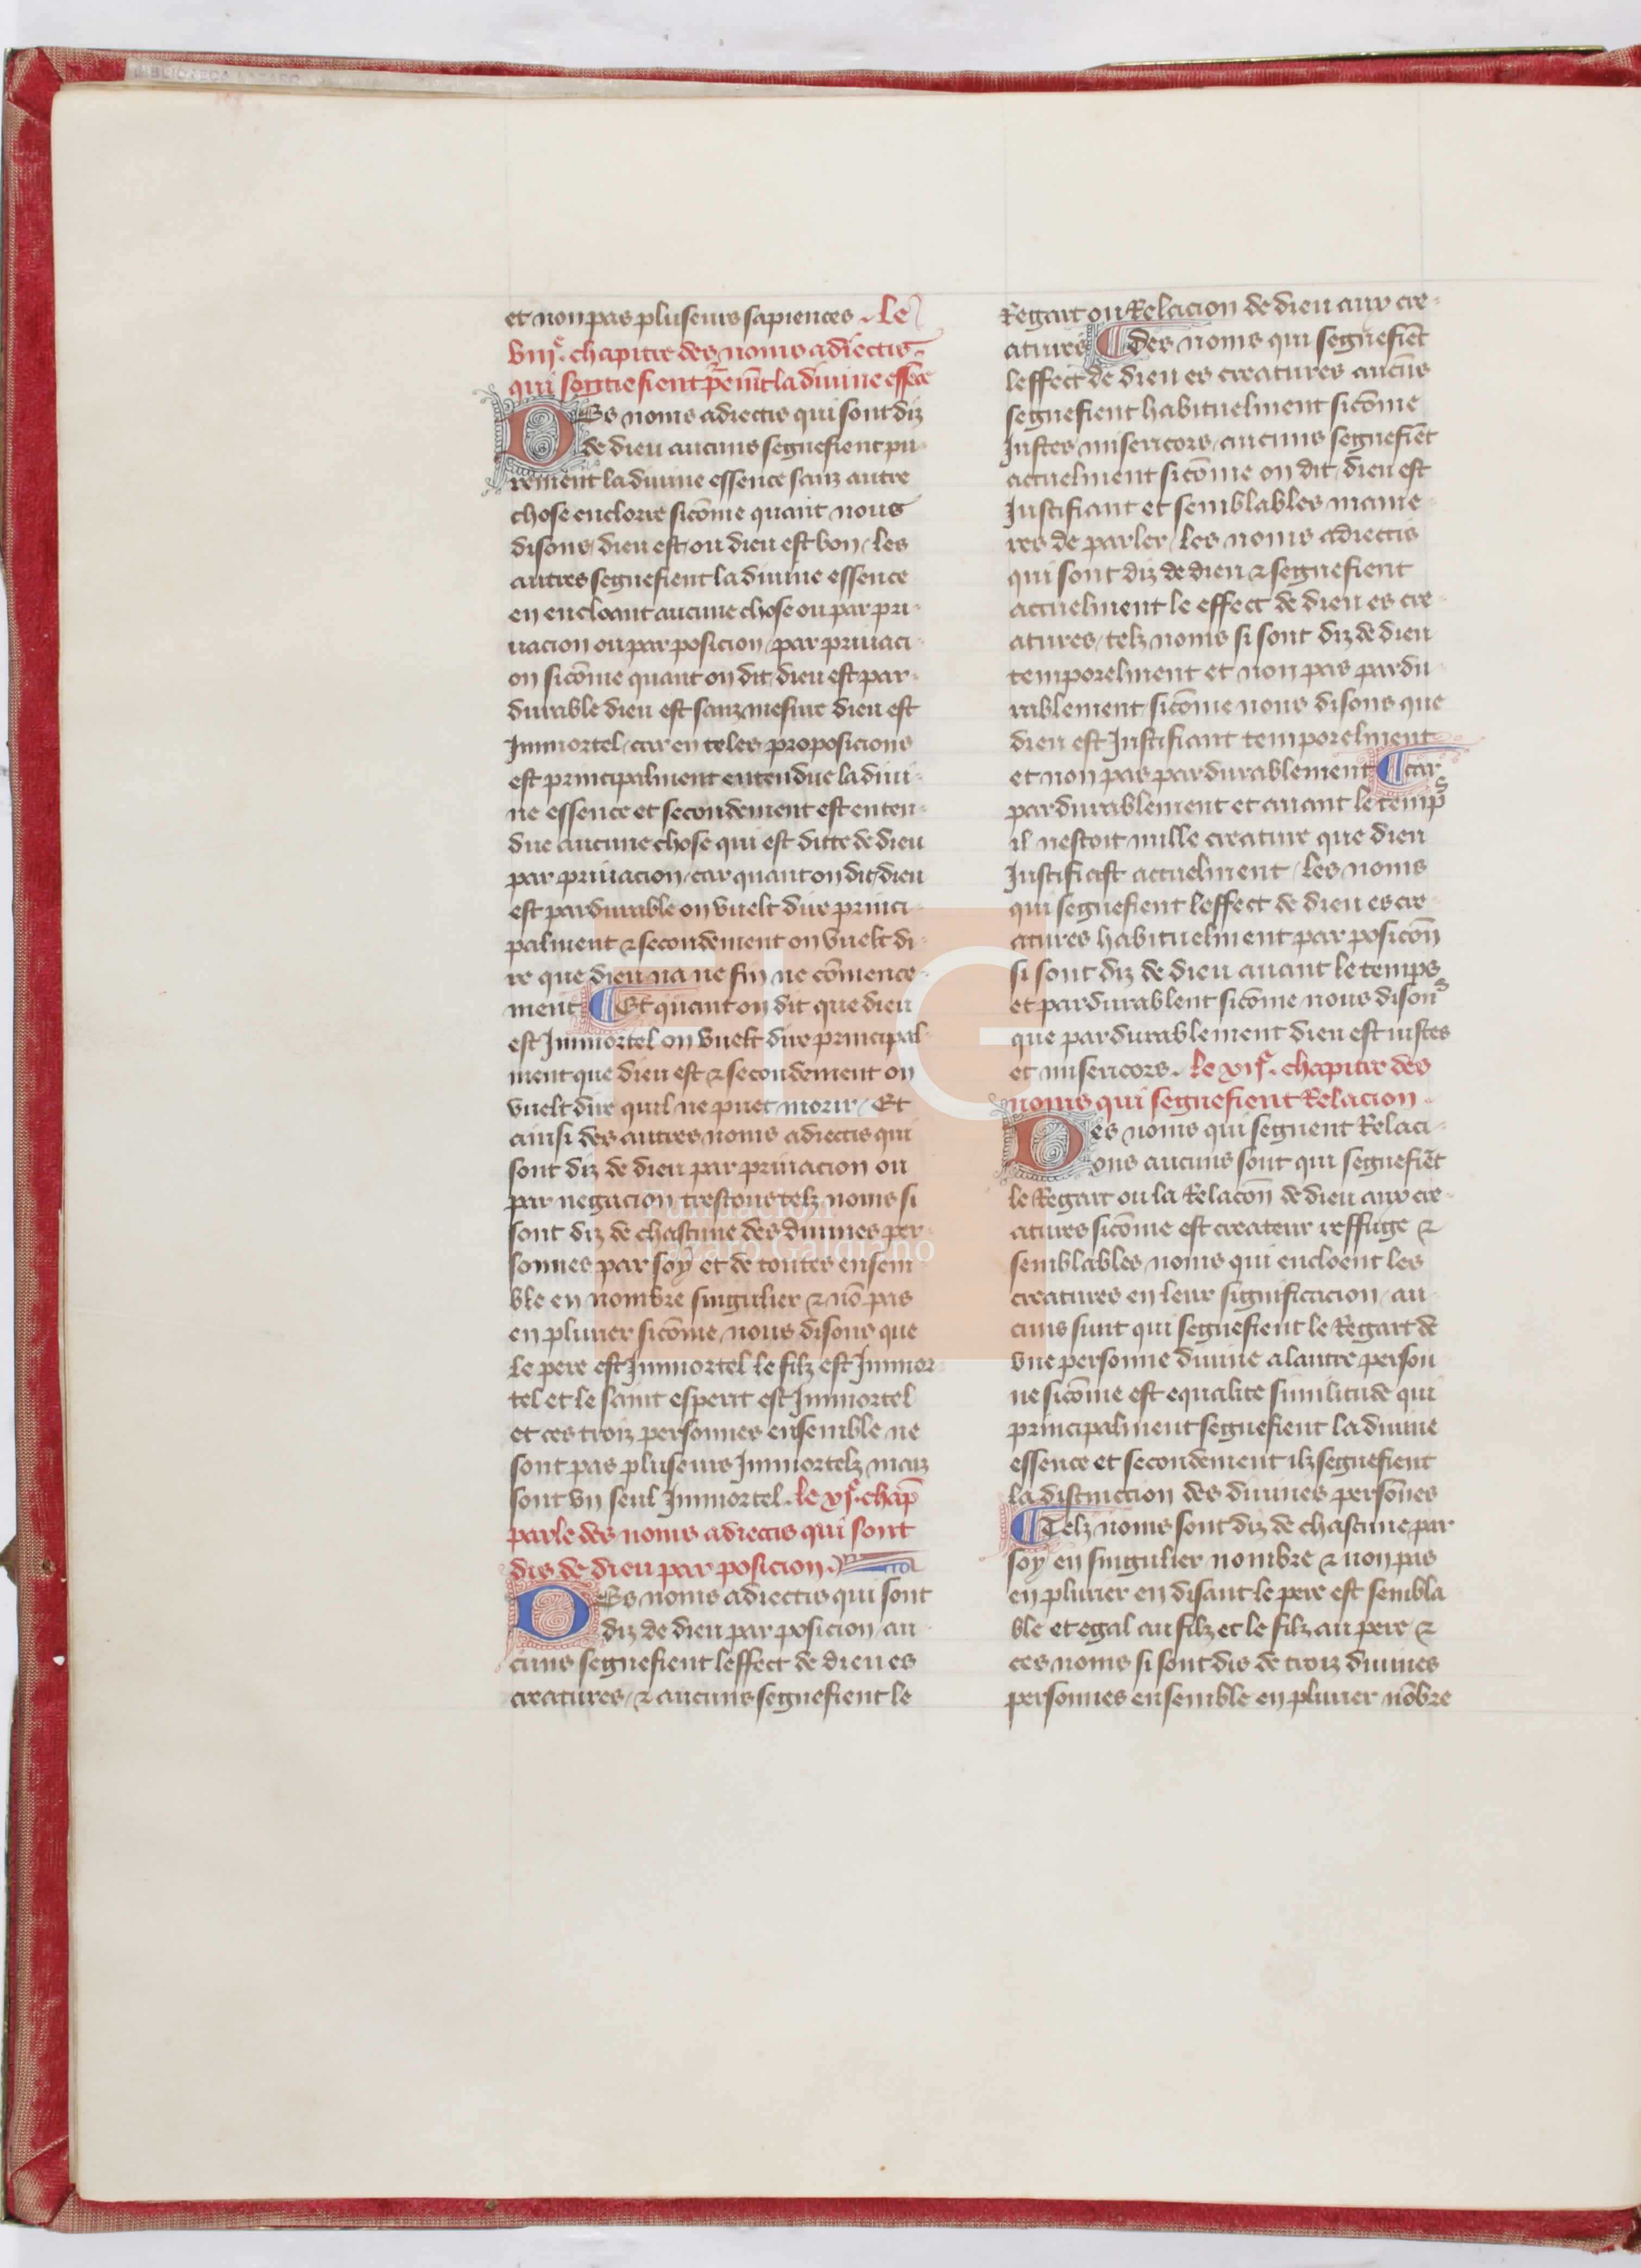 et non pas pluseurs sapiences . Le
viiie. chapitre des noms adiectis
qui segnefient premt la diuine essece
Des noms adiectis qui sont diz
de dieu aucuns segnefient pu
rement la diuine essence sanz autre
chose enclorre sicōme quant nous
disons dieu est ou dieu est bon / les
autres segnefient la diuine essence
en encloant aucune chose ou par pri
uacion ou par posicion / par priuaci
on sicōme quant on dit dieu est par
durable dieu est sanz mesure dieu est
Immortel / car en teles proposicions
est principalment entendue la diui
ne essence et secondement est enten
due aucune chose qui est ditte de dieu
par priuacion / car quant on dit dieu
est pardurable on vuelt dire princi
palment ⁊ secondement on vuelt di
re que dieu na ne fin ne cōmence
ment Et quant on dit que dieu
est Immortel on vuelt dire principal
ment que dieu est ⁊ secondement on
vuelt dire quil ne puet morir / Et
ainsi des autres noms adiectis qui
sont diz de dieu par priuacion ou
par negacion trestous telz noms si
sont diz de chascune des diuines per
sonnes par soy et de toutes ensem
ble en nombre singulier ⁊ nō pas
en plurier sicōme nous disons que
le pere est Immortel le filz est Immor
tel et le saint esperit est Immortel
et ces troiz personnes ensemble ne
sont pas pluseurs Immortelz maiz
sont vn seul Immortel . le xie. chap
parle des noms adiectis qui sont
dis de dieu par posicion .
Des noms adiectis qui sont
diz de dieu par posicion / au
cuns segnefient leffect de dieu es
creatures / ⁊ aucuns segnefient le
Regart ou Relacion de dieu aux cre
atures des noms qui segnefiēt
leffect de dieu es creatures aucūs
segnefient habituelment sicōme
Justes misericors / aucuns segnefiēt
actuelment sicōme on dit dieu est
Justifiant et semblables manie
res de parler / les noms adiectis
qui sont diz de dieu ⁊ segnefient
actuelment le effect de dieu es cre
atures / telz noms si sont diz de dieu
temporelment et non pas pardu
rablement sicōme nous disons que
dieu est Justifiant temporelment
et non pas pardurablement car
pardurablement et auant le temps
il nestoit nulle creature que dieu
Justifiast actuelment / les noms
qui segnefient leffect de dieu es cre
atures habituelment par posicōn
si sont diz de dieu auant le temps
et pardurablent sicōme nous disons
que pardurablement dieu est iustes
et misericors . le xiie. chapitre des
noms qui segnefient Relacion .
Des noms qui seguent Relaci
ons aucuns sont qui segnefiēt
le Regart ou la Relacōn de dieu aux cre
atures sicōme est createur reffuge ⁊
semblables noms qui encloent les
creatures en leur significacion / au
cuns sunt qui segnefient le Regart de
vne personne diuine a lautre person
ne sicōme est equalite similitude qui
principalment segnefient la diuine
essence et secondement ilz segnefient
la distinction des diuines persōnes
Telz noms sont diz de chascune par
soy en singulier nombre ⁊ non pas
en plurier en disant le pere est sembla
ble et egal au filz et le filz au pere ⁊
ces noms si sont dis de troiz diuines
personnes ensemble en plurier nōbre
FLG
Fundación
Lázaro Galdiano
BIBLIOTECA LAZARO